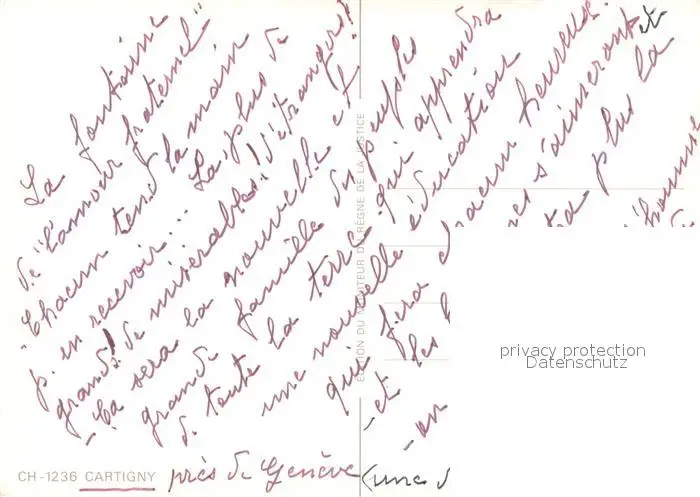 La fontaine
de "l'amour fraternel"
"Chacun tend la main
p. en recevoir... La plus de
grands! de misérables! d'étrangers!
- Ça sera la nouvelle et
grande famille du peuple
de toute la terre qui apprendra
une nouvelle éducation
qui fera chacun heureux.
- et les s'aimeront et
- on plus la
l'homme
de
EDITION DU MONITEUR DU RÈGNE DE LA JUSTICE
privacy protection
Datenschutz
CH-1236 CARTIGNY près de Genève (une